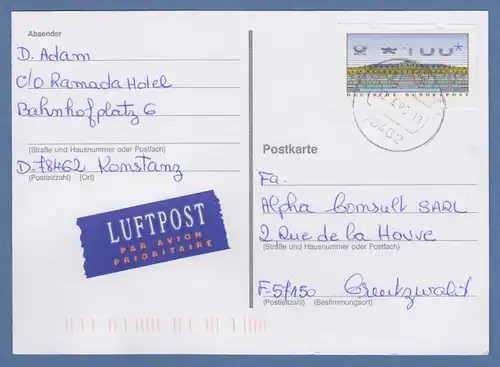 Absender
D. Adam
C/O Ramada Hotel
Bahnhofplatz 6
(Straße und Hausnummer oder Postfach)
D-78462 Konstanz
(Postleitzahl) (Ort)
LUFTPOST
PAR AVION
PRIORITAIRE
*100*
DEUTSCHE BUNDESPOST
Postkarte
Fa.
Alpha Consult SARL
2 Rue de la Houve
(Straße und Hausnummer oder Postfach)
F-57150 Creutzwald
(Postleitzahl) (Bestimmungsort)